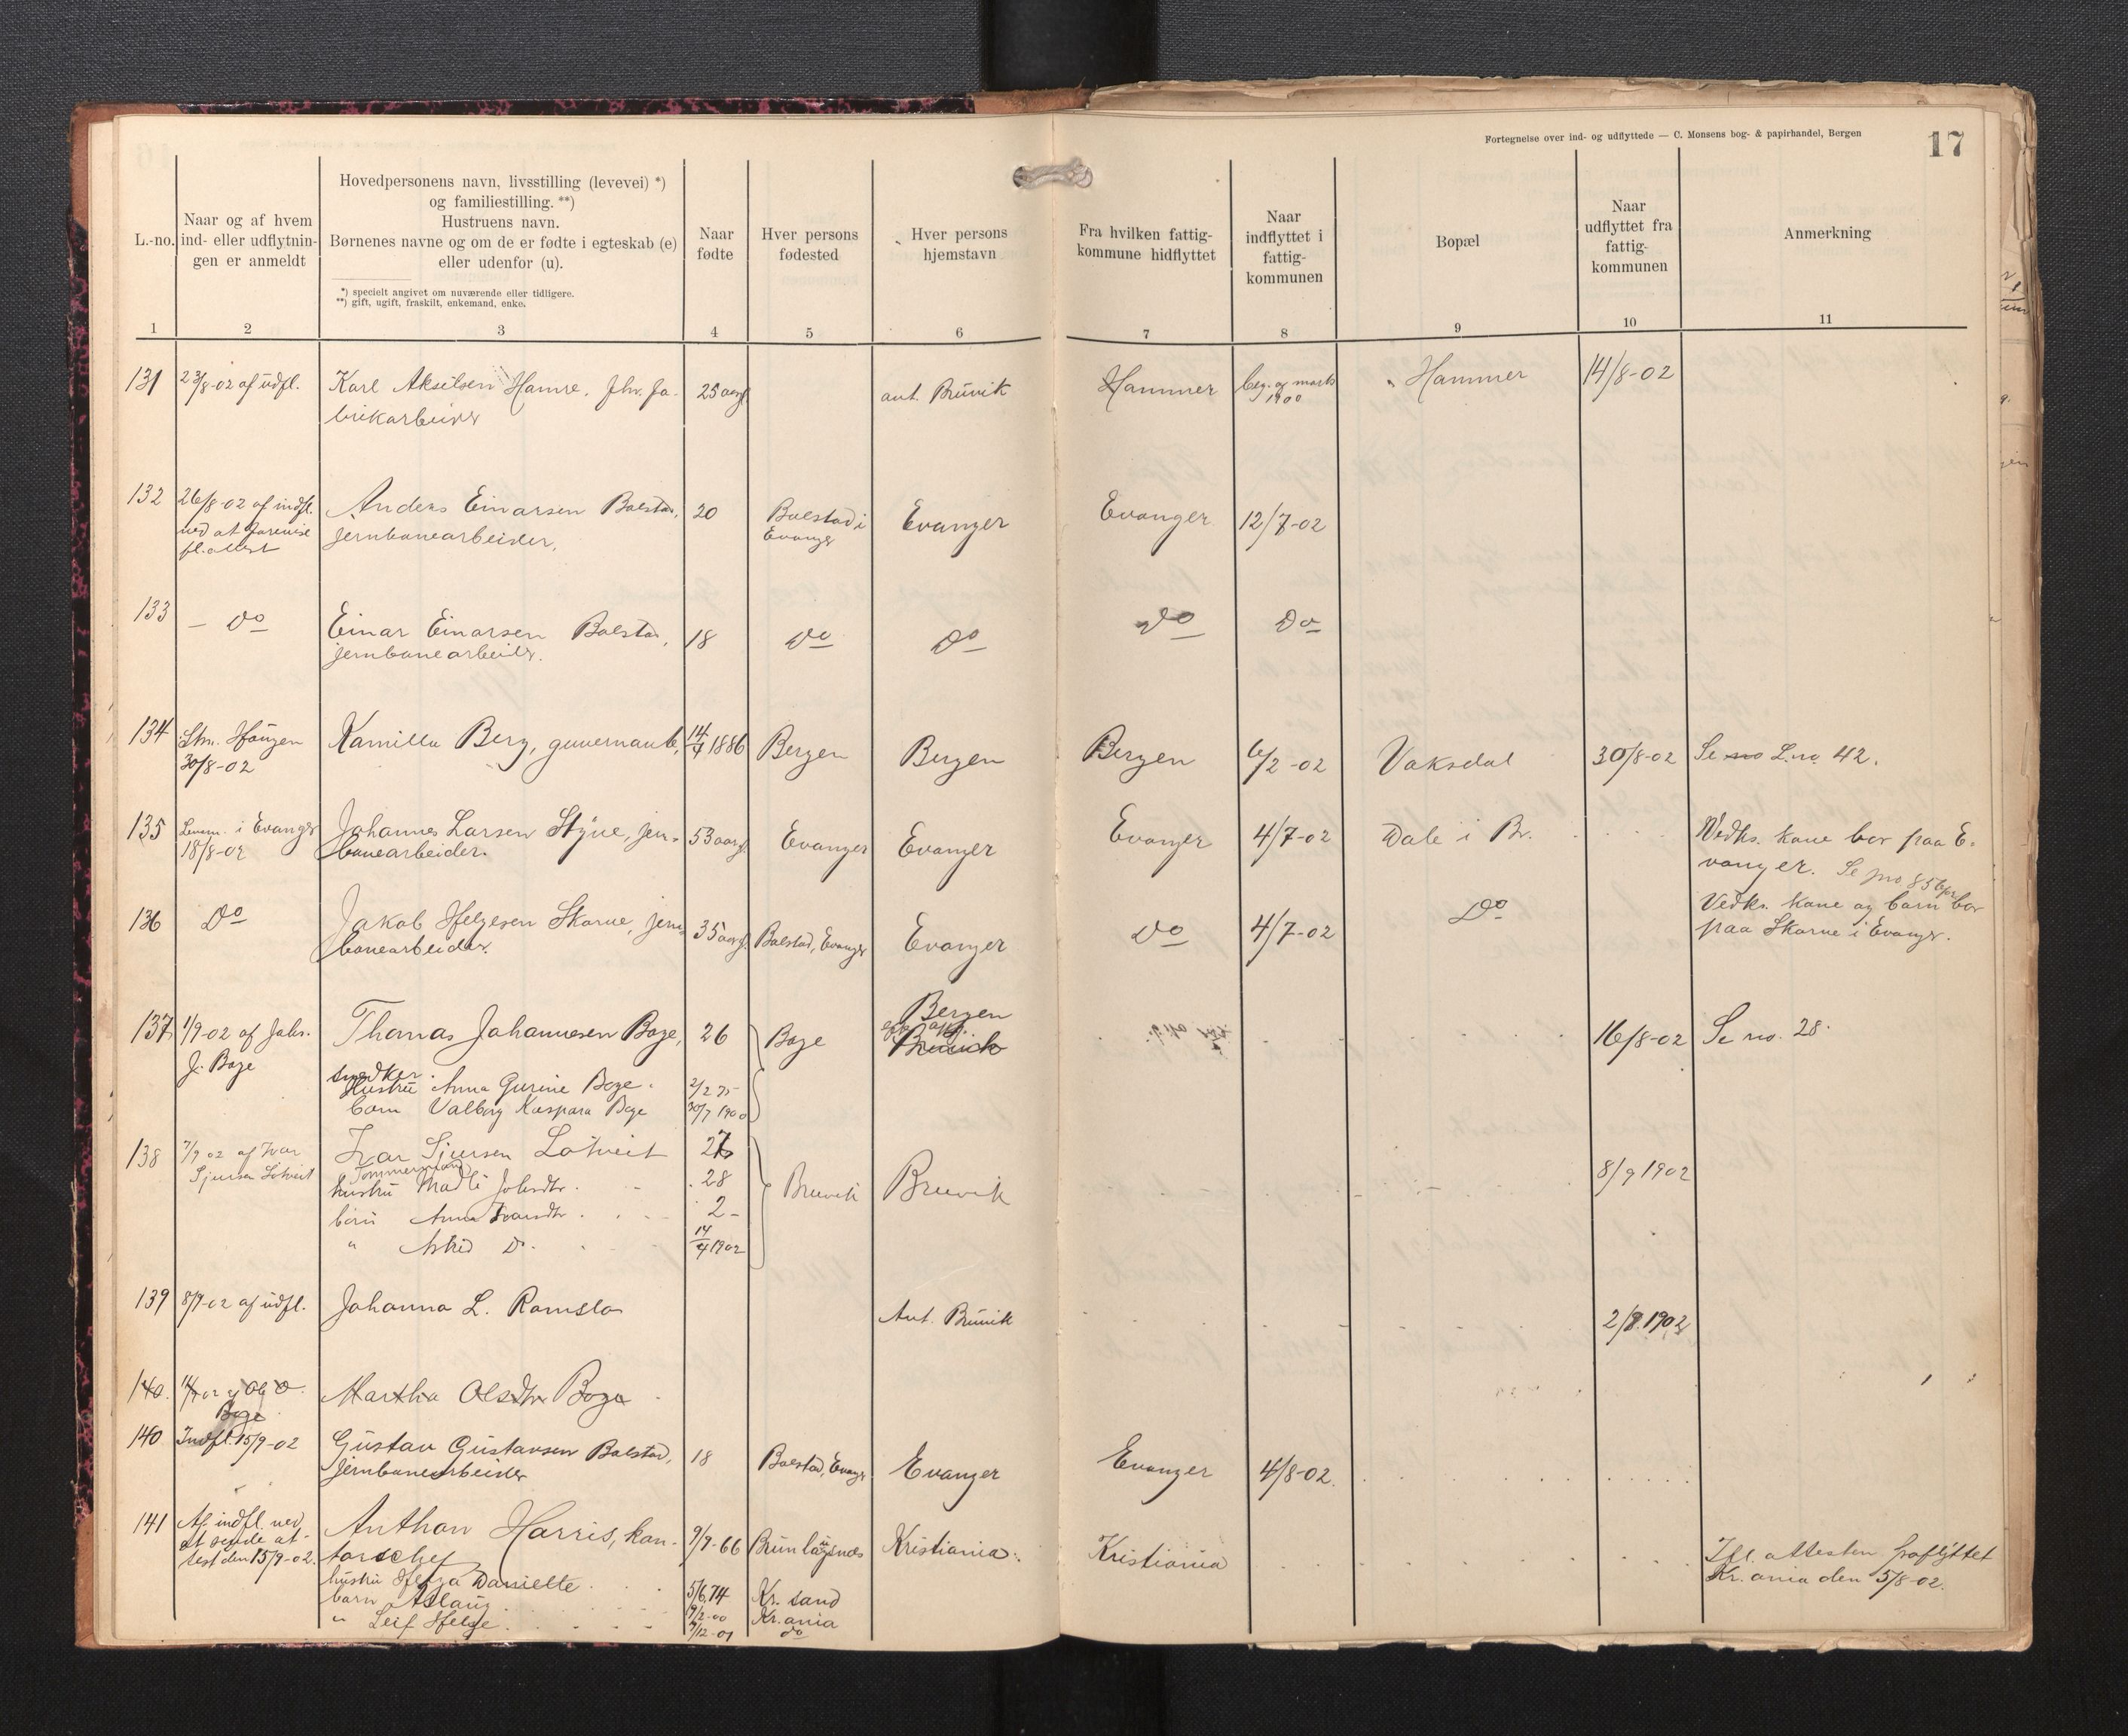 Fortegnelse over ind- og udflyttede — C. Monsens bog- & papirhandel, Bergen
17
L.-no.
Naar og af hvem
ind- eller udflytnin-
gen er anmeldt
Hovedpersonens navn, livsstilling (levevei) *)
og familiestilling. **)
Hustruens navn.
Børnenes navne og om de er fødte i egteskab (e)
eller udenfor (u).
*) specielt angivet om nuværende eller tidligere.
**) gift, ugift, fraskilt, enkemand, enke.
Naar
fødte
Hver persons
fødested
Hver persons
hjemstavn
Fra hvilken fattig-
kommune hidflyttet
Naar
indflyttet i
fattig-
kommunen
Bopæl
Naar
udflyttet fra
fattig-
kommunen
Anmerkning
1 2 3 4 5 6 7 8 9 10 11
131 23/8-02 af udfl. Karl Akselsen Hamre, fhv. fa- 25 aar ant. Bruvik Hammer beg. af marts Hammer 14/8-02
brikarbeider 1900
132 26/8-02 af indfl. Anders Einarsen Bolstad, 20 Bolstad i Evanger Evanger 12/7-02
ved at forevise jernbanearbeider, Evanger
fl.attest
133 — Do Einar Einarsen Bolstad, 18 Do Do Do Do
jernbanearbeider.
134 Lm. Hougen Kamilla Berg, guvernante, 14/7 1886 Bergen Bergen Bergen 6/2-02 Vaksdal 30/8-02 Se no L.no. 42.
30/8-02
135 Lensm. i Evanger Johannes Larsen Styve, jern- 53 aar Evanger Evanger Evanger 4/7-02 Dale i Br. Vedk. kone bor paa E-
18/8-02 banearbeider. vanger. Se
136 Do Jakob Helgesen Skorve, jern- 35 aar Bolstad, Evanger Evanger Do 4/7-02 Do Vedk. kone og barn bor
banearbeider. paa Skorve i Evanger.
137 1/9-02 af Johs. Thomas Johannesen Boge, 26 Boge Bergen Bruvik 16/8-02 Se no. 28.
J. Boge snedker.
Hustru Anna Gurine Boge. 2/2 75
barn Valborg Kaspara Boge 30/7 1900
138 7/9 02 af Ivar Ivar Sjursen Lotveit 27 Bruvik Bruvik 8/9 1902
Sjursen Lotveit Tømmermand
hustru Madli Johsdtr. 28
børn Anna Ivarsdtr. 2 -
" Astrid Do. 14/4 1902
139 8/9-02 af udfl. Johanna L. Romslo Ant. Bruvik 2/8 1902
140. 14/9 02 af Ole O. Martha Olsdtr. Boge
Boge
140 Indfl. 15/9-02 Gustav Gustavsen Bolstad, 18 Bolstad, Evanger Evanger Evanger 4/8-02.
jernbanearbeider
141 Af indfl. ved Anthon Harris, kon- 9/9-66 Brunlagnæs Kristiania Kristiania Ifl. attesten fraflyttet
at sende at- torchef Kr.ania den 5/8-02.
test den 15/9-02. hustru Helga Danielle 5/6 74 Kr. sand
barn Aslaug 9/2-00 Kr.ania
" Leif Helge. 7/12-01 do